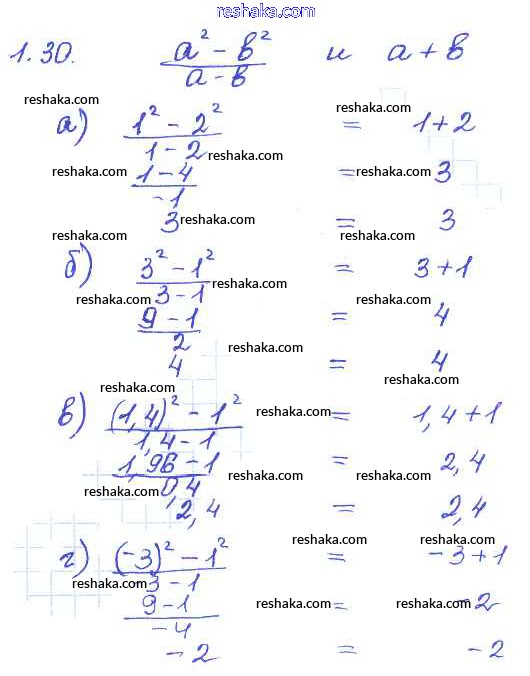 reshaka.com reshaka.com
1.30. (a² - b²)/(a - b) и a + b
reshaka.com reshaka.com reshaka.com
а) (1² - 2²)/(1 - 2) = 1 + 2
reshaka.com
reshaka.com reshaka.com
(1 - 4)/(-1) = 3
reshaka.com
3 = 3
reshaka.com reshaka.com
б) (3² - 1²)/(3 - 1) = 3 + 1
reshaka.com reshaka.com
reshaka.com
(9 - 1)/2 = 4
reshaka.com
4 = 4
reshaka.com
reshaka.com
в) ((1,4)² - 1²)/(1,4 - 1) = 1,4 + 1
reshaka.com
(1,96 - 1)/0,4 = 2,4
reshaka.com reshaka.com
reshaka.com
2,4 = 2,4
reshaka.com reshaka.com
г) ((-3)² - 1²)/(-3 - 1) = -3 + 1
reshaka.com reshaka.com
(9 - 1)/(-4) = -2
reshaka.com
reshaka.com
-2 = -2